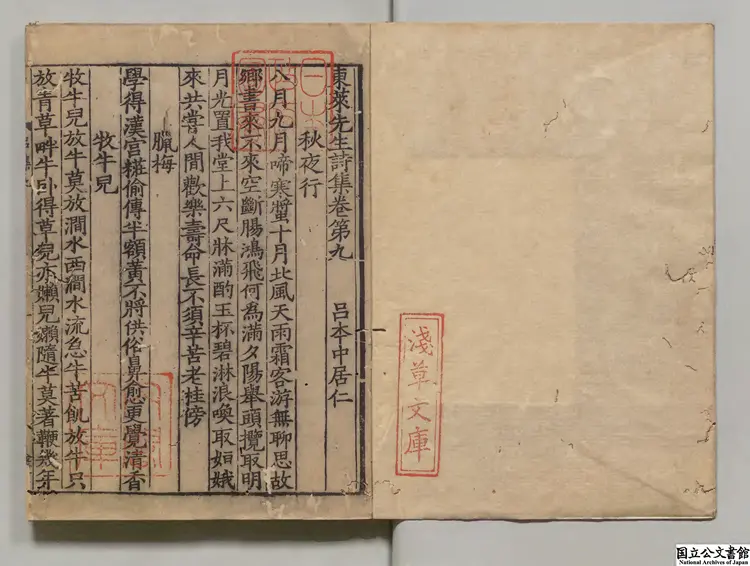 淺草文庫
東萊先生詩集卷第九 呂本中居仁
秋夜行
八月九月啼寒螿十月北風天雨霜客游無聊思故
鄉書來不來空斷腸鴻飛何為滿夕陽舉頭攬取明
月光置我堂上六尺牀滿酌玉杯碧淋浪喚取姮娥
來共嘗人間歡樂壽命長不須辛苦老桂傍
臘梅
學得漢宮糚偷傳半額黃不將供俗鼻愈更覺清香
牧牛兒
牧牛兒放牛莫放澗水西澗水流急牛苦飢放牛只
放青草畔牛卧得草兒亦嬾兒嬾隨牛莫著鞭幾年
国立公文書館
National Archives of Japan